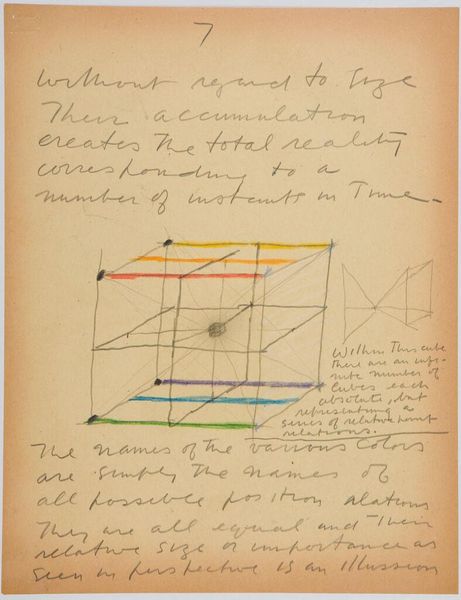 7
without regard to size
Their accumulation
creates the total reality
corresponding to a
number of instants in Time-
Within this cube
there are an infi-
nite number of
Cubes each
absolute, but
representing a
series of relative point
relations.
The names of the various colors
are simply the names of
all possible position alations
They are all equal and their
relative size or importance as
seen in perspective is an illussion